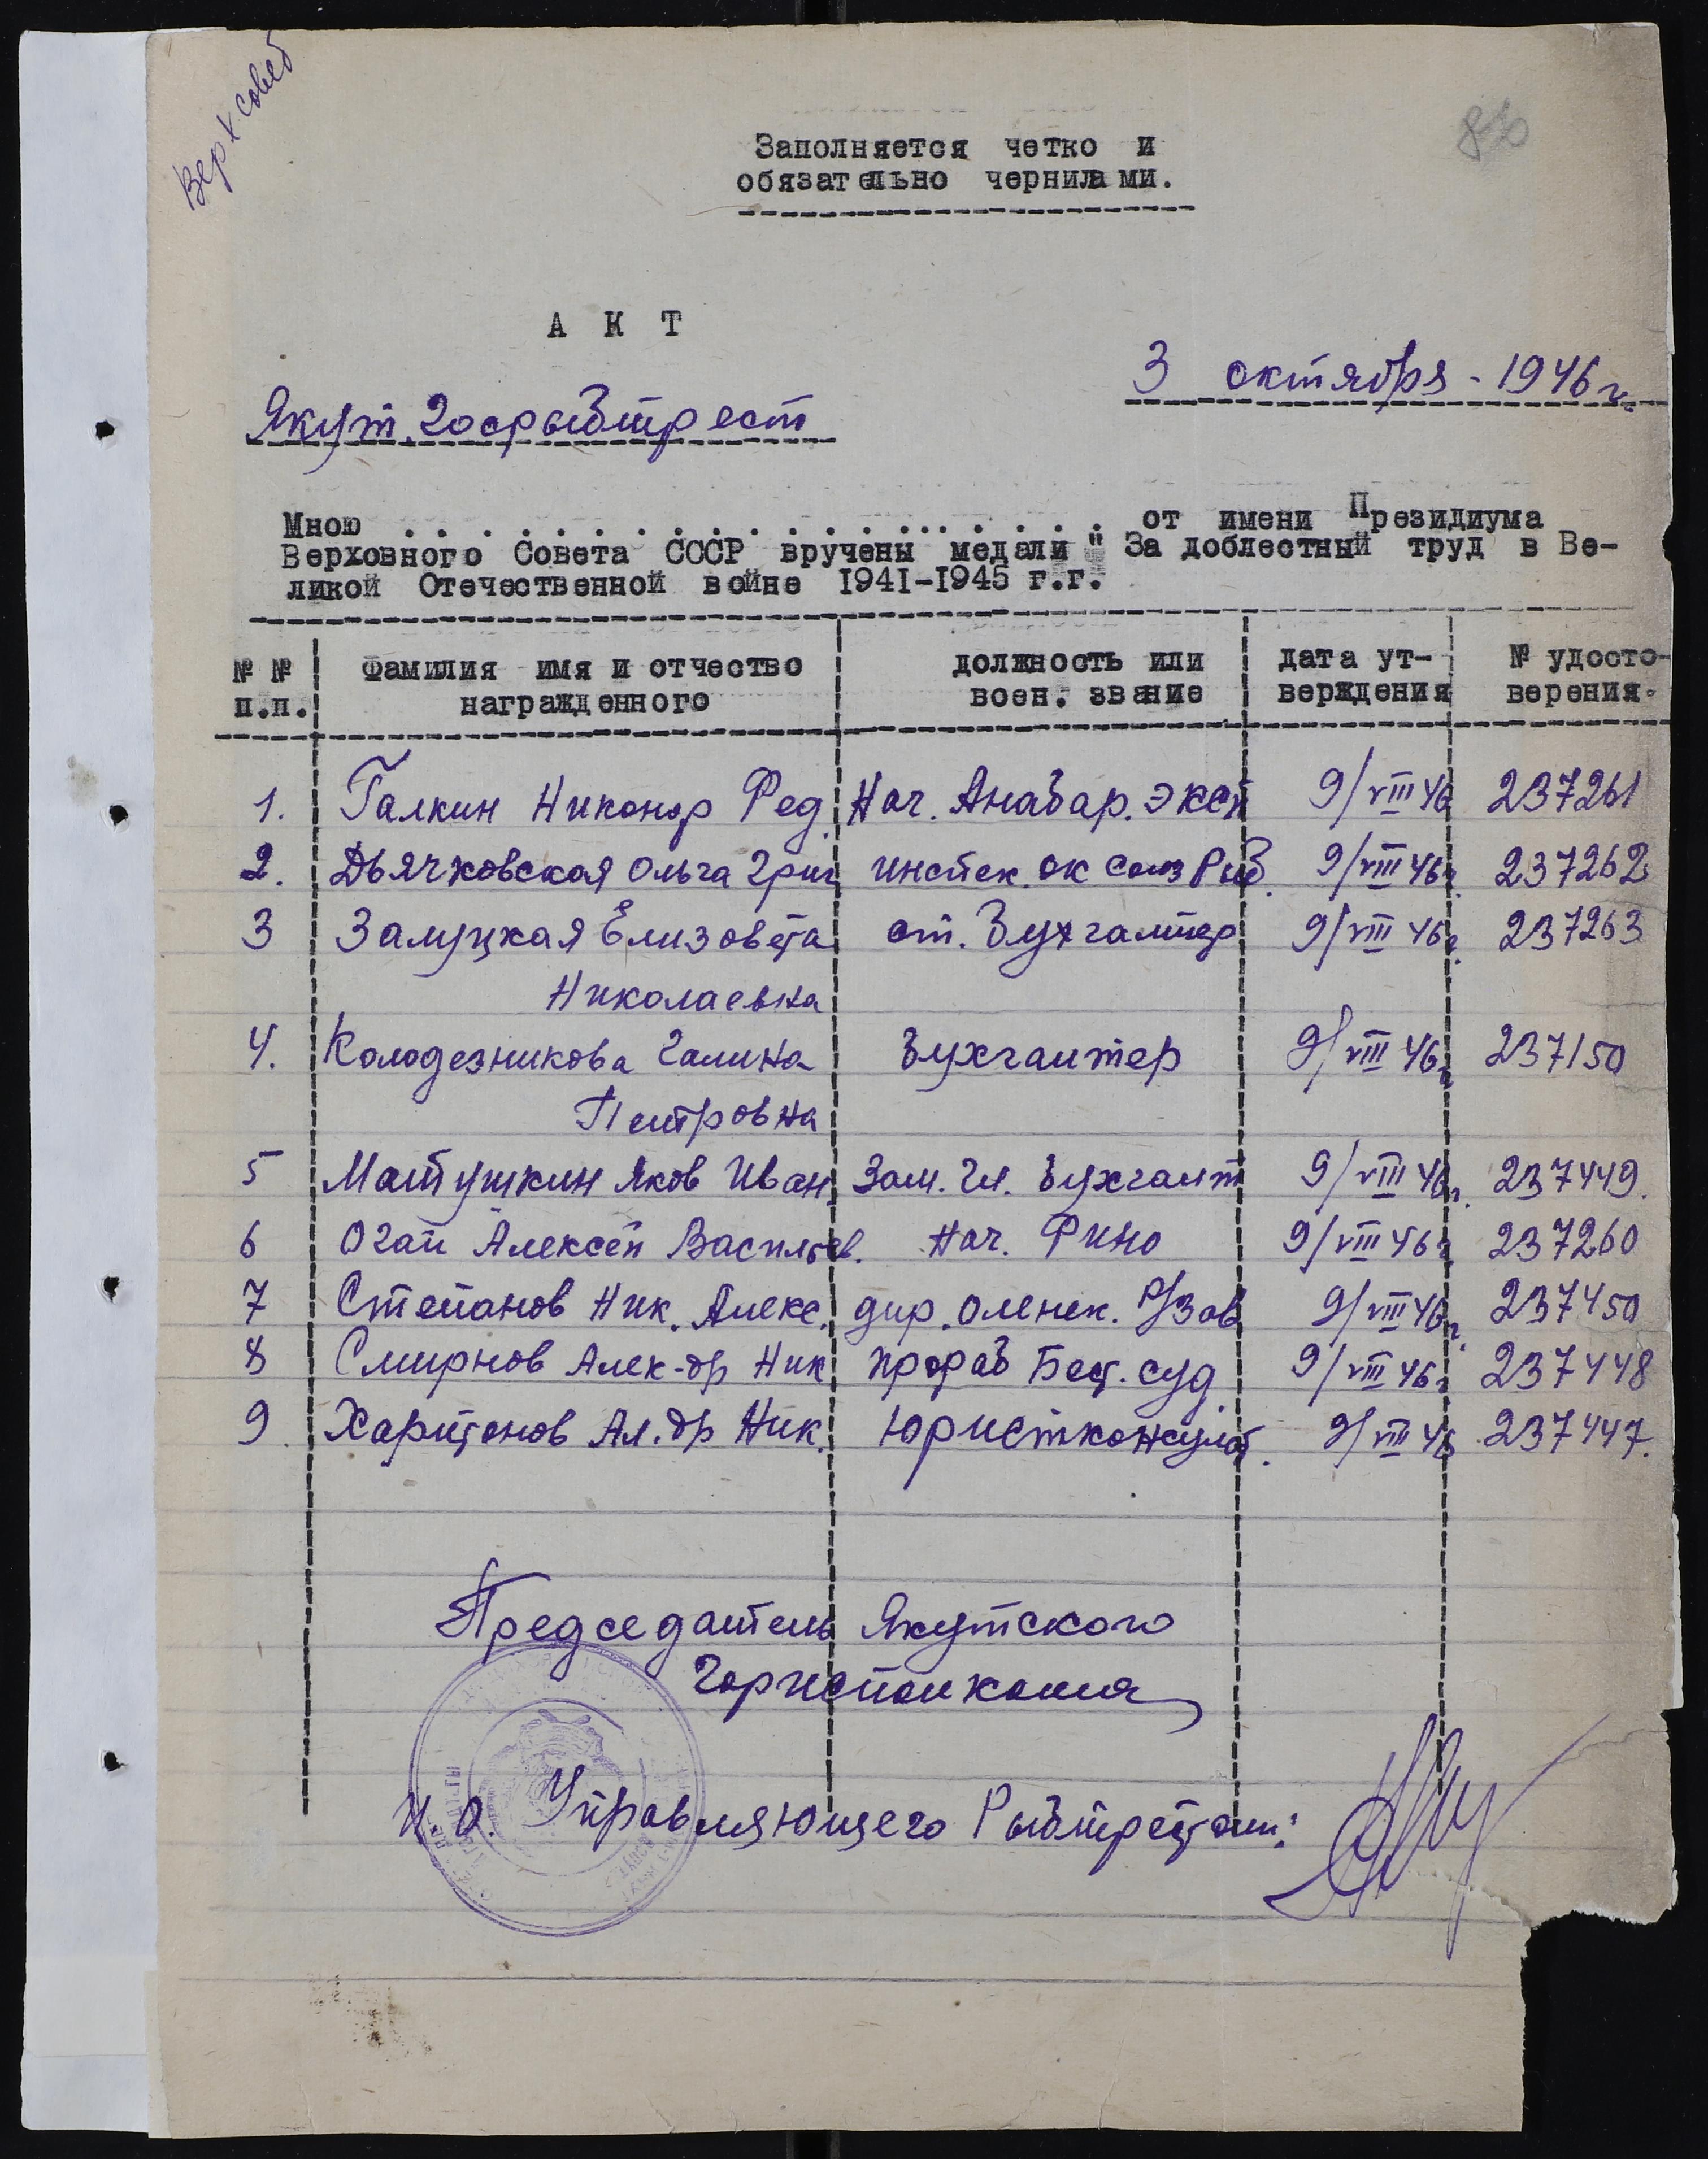 Верх. Совет
86
Заполняется четко и
обязательно чернилами.
АКТ
3 октября - 1946 г.
Якут. Госрыбтрест
Мною . . . . . . . . . . . . . . . . . . . . от имени Президиума
Верховного Совета СССР вручены медали " За доблестный труд в Ве-
ликой Отечественной войне 1941-1945 г.г.
№ № п.п. фамилия имя и отчество награжденного должность или воен. звание дата ут-верждения № удосто-верения.
1. Галкин Никонор Фед. Нач. Анабар. эксп 9/VIII 46 237261
2. Дьячковская Ольга Григ инспек. ок союз Рыб. 9/VIII 46г. 237262
3 Залуцкая Елизовета ст. бухгалтер 9/VIII 46г. 237263
Николаевна
4. Колодезникова Галина бухгалтер 9/VIII 46г. 237150
Петровна
5 Матушкин Яков Иван. Зам. Гл. бухгалт 9/VIII 46г. 237449.
6 Огай Алексей Васильев. Нач. Фино 9/VIII 46г. 237260
7 Степанов Ник. Алекс. дир. Оленек. р/зав 9/VIII 46г. 237450
8 Смирнов Алек-др Ник прораб Бест. суд. 9/VIII 46г 237448
9. Харитонов Ал.др Ник. Юристконсулт. 9/VIII 46 237447.
Председатель Якутского
Горисполкома
И. О. Управляющего Рыбтрестом: